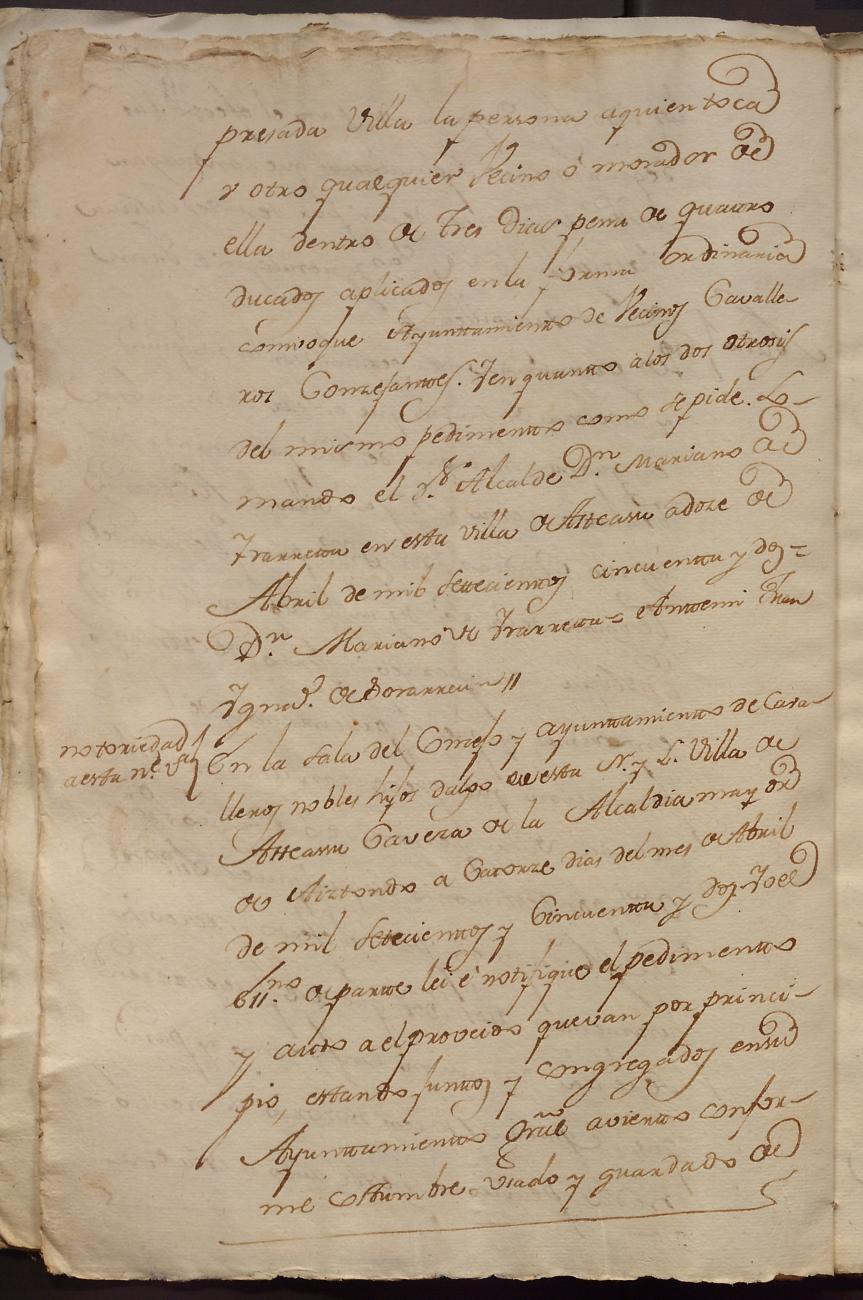 presada Villa la persona a quien toca
y otro qualquier Vecino o morador de
ella dentro de Tres Dias pena de quattro
ducados aplicados en la forma ordinaria
comboque Ayunttamiento de Vecinos Cavalle-
ros Conzejantes. Y en quanto a los dos otrosis
del mismo pedimentto como se pide. Lo
mando el s.r Alcalde D.n Mariano de
Yrarreta en esta villa de Atteasu a doze de
Abril de mil settecienttos cincuentta y dos =
D.n Mariano de Yrarreta = Antemi Juan
Ygna.o de
notoriedad
a esta n.e v.a
En la Sala del Conzejo y ayunttamientto de Cava-
lleros nobles hijos dalgo de esta N. y L. Villa de
Atteasu Caveza de la Alcaldia mayor
de Aiztondo a Catorze dias del mes de Abril
de mil Settecienttos y Cincuentta y dos Yo el
ess.no de parte lei é notifique el pedimentto
y autto a el proveido que van por princi-
pio, estando junttos y congregados en su
Ayunttamientto Gral avierto confor-
me costumbre usado y guardado de